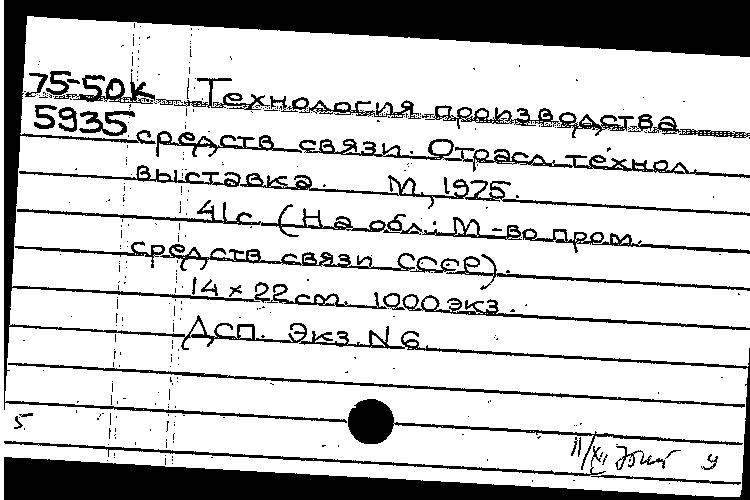 75-50к Технология производства
5935 средств связи. Отрасл. технол.
выставка. М., 1975.
41 с. (На обл.: М-во пром.
средств связи СССР).
14 x 22 см. 1000 экз.
ДСП. Экз. N 6.
5
11/XII У